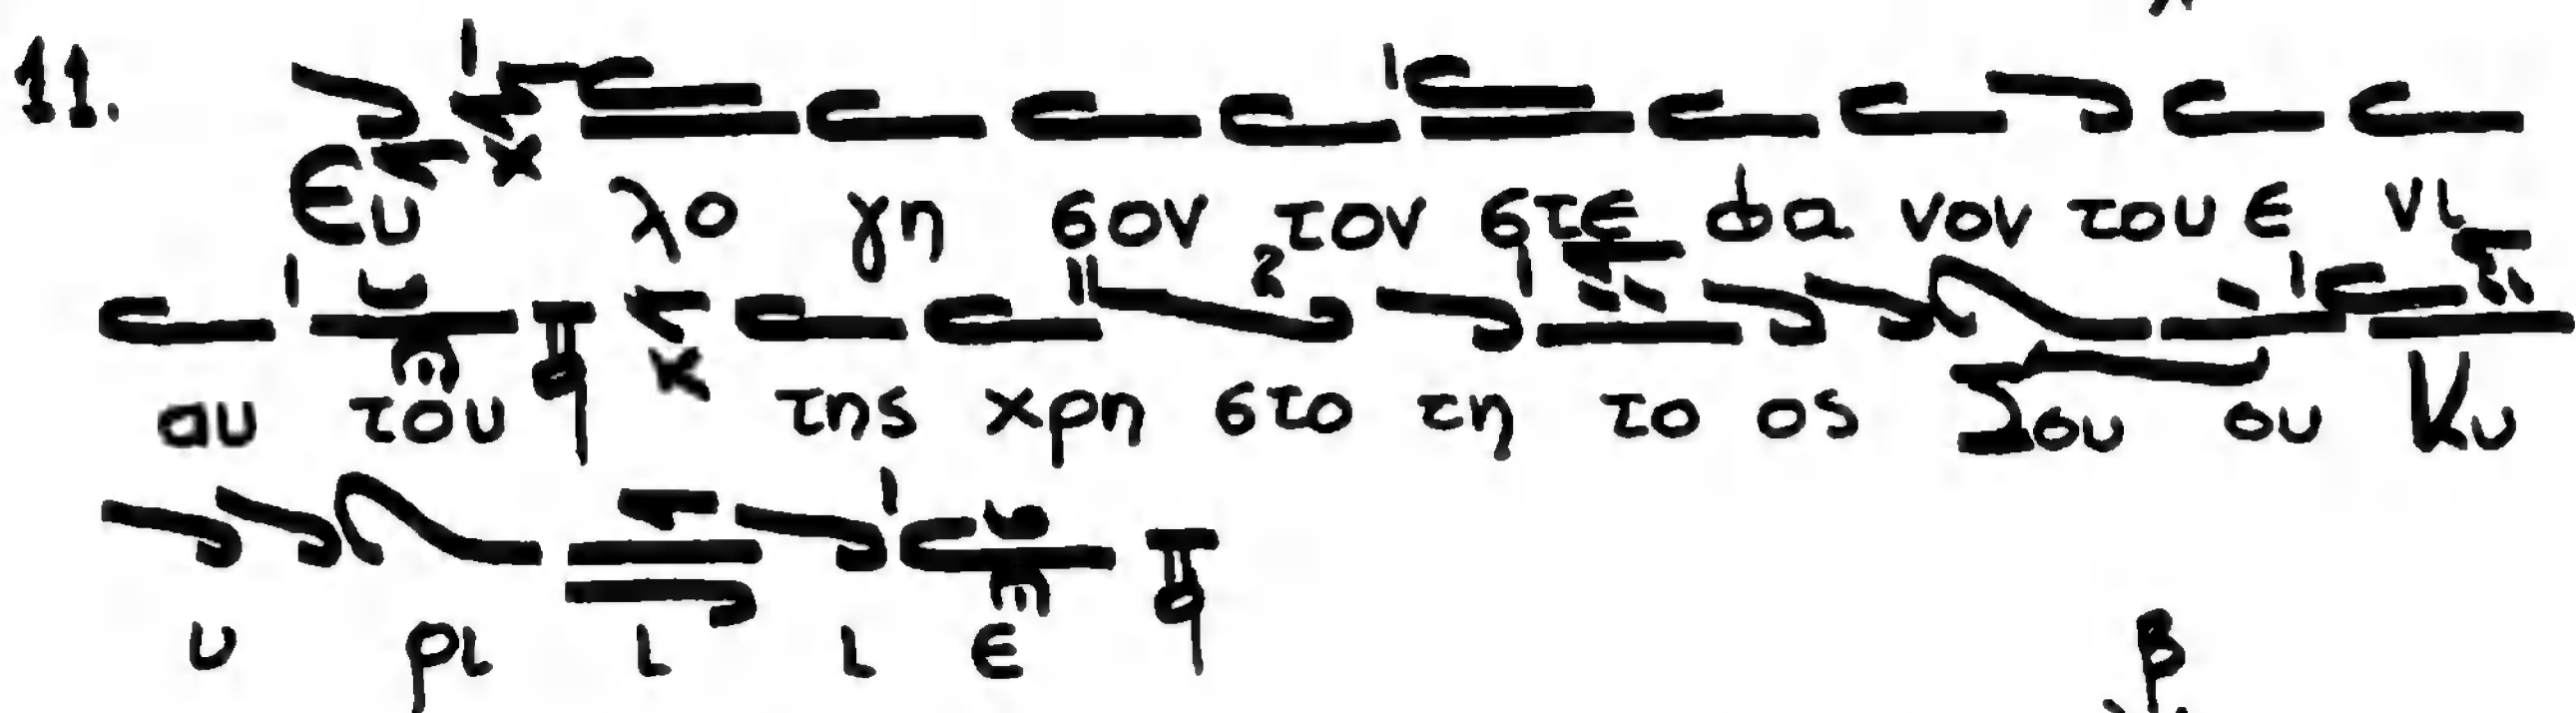 11.
Ευ λο γη σον τον στε φα νον του ε νι
αυ του της χρη στο τη το ος Σου ου Κυ
υ ρι ι ι ε
β